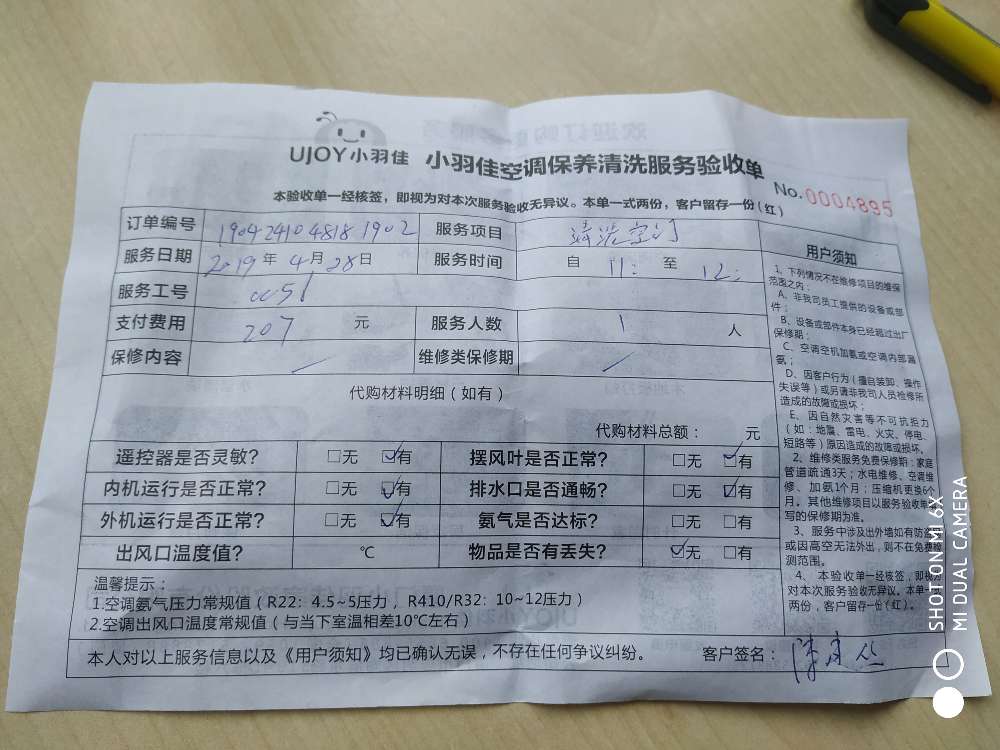 UJOY小羽佳 小羽佳空调保养清洗服务验收单
No.0004895
本验收单一经核签，即视为对本次服务验收无异议。本单一式两份，客户留存一份（红）
订单编号 190424104818 1902 服务项目 清洗空调
服务日期 2019年4月28日 服务时间 自 11: 至 12:
服务工号 0051
支付费用 207 元 服务人数 1 人
保修内容 / 维修类保修期 /
代购材料明细（如有）
代购材料总额： 元
遥控器是否灵敏? □无 ☑有 摆风叶是否正常? □无 ☑有
内机运行是否正常? □无 ☑有 排水口是否通畅? □无 ☑有
外机运行是否正常? □无 ☑有 氨气是否达标? □无 □有
出风口温度值? ℃ 物品是否有丢失? ☑无 □有
温馨提示：
1.空调氨气压力常规值（R22：4.5~5压力，R410/R32：10~12压力）
2.空调出风口温度常规值（与当下室温相差10℃左右）
本人对以上服务信息以及《用户须知》均已确认无误，不存在任何争议纠纷。 客户签名：
用户须知
1、下列情况不在维修项目的维保
范围之内：
A、非我司员工提供的设备或部
件；
B、设备或部件本身已经超过出厂
保修期；
C、空调空机加氨或空调内部漏
氨；
D、因客户行为（擅自装卸、操作
失误等）或另请非我司人员检修所
造成的故障或损坏；
E、因自然灾害等不可抗拒力
（如：地震、雷电、火灾、停电、
短路等）原因造成的故障或损坏。
2、维修类服务免费保修期：家庭
管道疏通3天；水电维修、空调维
修、加氨1个月；压缩机更换6个
月。其他维修项目以服务验收单
写的保修期为准。
3、服务中涉及出外墙如有防盗
或因高空无法外出，则不在免费检
测范围。
4、本验收单一经核签，即视为
对本次服务验收无异议。本单一式
两份，客户留存一份（红）。
SHOT ON MI 6X
MI DUAL CAMERA